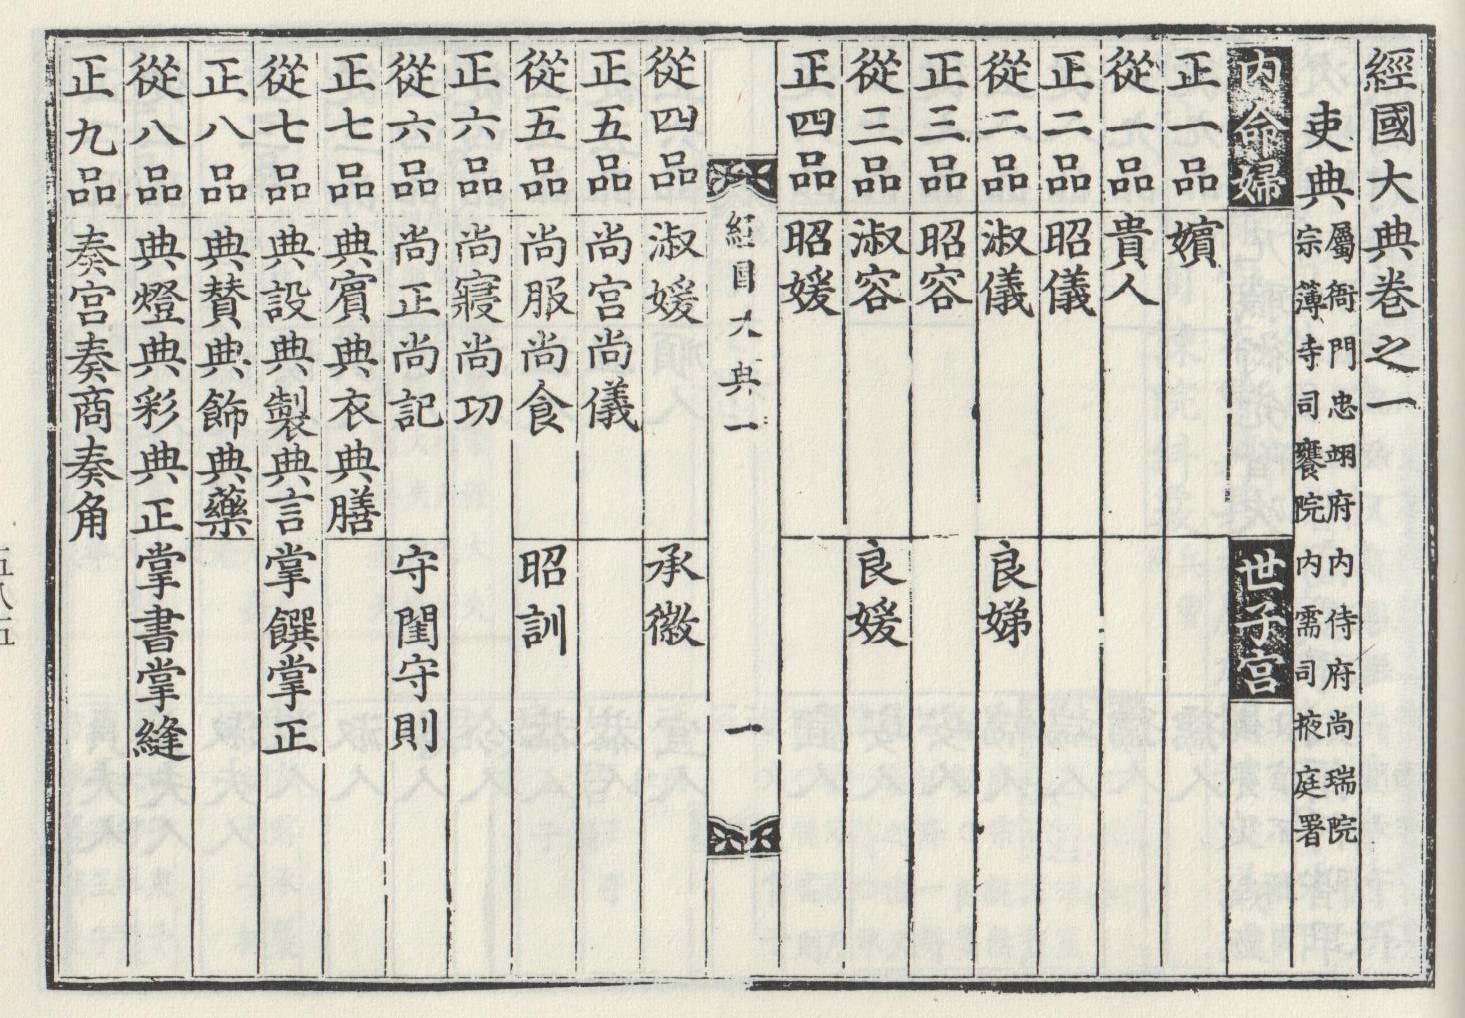 經國大典卷之一
吏典
屬衙門忠翊府內侍府尚瑞院
宗簿寺司饔院內需司掖庭署
內命婦 世子宮
正一品 嬪
從一品 貴人
正二品 昭儀
從二品 淑儀 良娣
正三品 昭容
從三品 淑容 良媛
正四品 昭媛
經國大典一 一
從四品 淑媛 承徽
正五品 尚宮尚儀
從五品 尚服尚食 昭訓
正六品 尚寢尚功
從六品 尚正尚記 守閨守則
正七品 典賓典衣典膳
從七品 典設典製典言 掌饌掌正
正八品 典贊典飾典藥
從八品 典燈典彩典正 掌書掌縫
正九品 奏宮奏商奏角
五八五